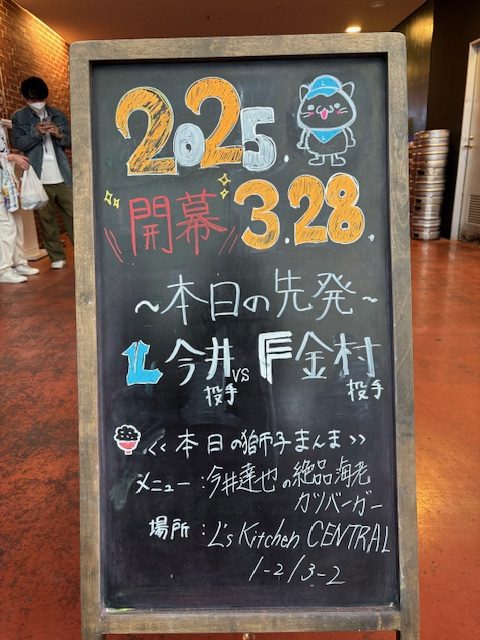 2025.
開幕 3.28.
～本日の先発～
L 今井投手 vs F 金村投手
<<本日の獅子まんま>>
メニュー：今井達也の絶品海老
カツバーガー
場所：L's Kitchen CENTRAL
1-2/3-2